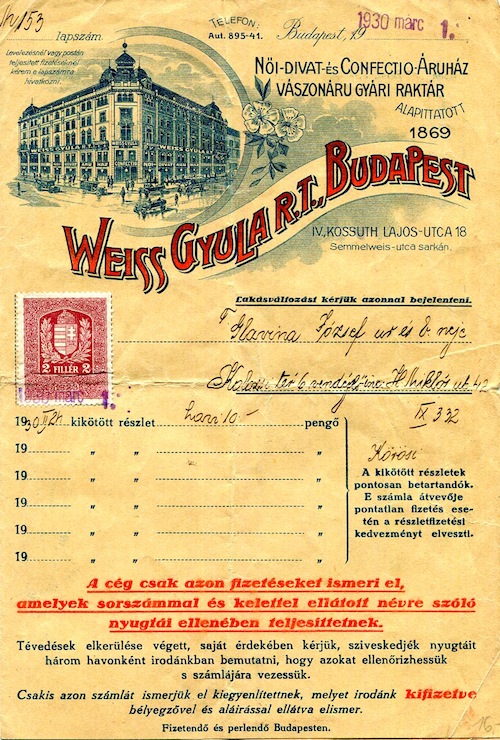 153
lapszám.
Levelezésnél vagy postán
teljesített fizetéseknél
kérem e lapszámra
hivatkozni.
TELEFON:
Aut. 895-41.
Budapest, 19
1930 marc 1.
NŐI-DIVAT-ÉS CONFECTIO-ÁRUHÁZ
VÁSZONÁRU GYÁRI RAKTÁR
ALAPITTATOTT
1869
WEISS GYULA R.T., BUDAPEST
IV., KOSSUTH LAJOS-UTCA 18
Semmelweis-utca sarkán.
WEISS GYULA
Lakásváltozást kérjük azonnal bejelenteni.
Glavina József ur és neje
2 FILLÉR 2
1930 marc 1.
tér 6 Miklós ut 42
1930 kikötött részlet havi 10.- pengő
IX 332
19 " " "
19 " " "
19 " " "
19 " " "
19 " " "
Kőrösi
A kikötött részletek
pontosan betartandók.
E számla átvevője
pontatlan fizetés ese-
tén a részletfizetési
kedvezményt elveszti.
A cég csak azon fizetéseket ismeri el,
amelyek sorszámmal és kelettel ellátott névre szóló
nyugtái ellenében teljesíttetnek.
Tévedések elkerülése végett, saját érdekében kérjük, sziveskedjék nyugtáit
három havonként irodánkban bemutatni, hogy azokat ellenőrizhessük
s számlájára vezessük.
Csakis azon számlát ismerjük el kiegyenlítettnek, melyet irodánk kifizetve
bélyegzővel és aláírással ellátva elismer.
Fizetendő és perlendő Budapesten.
16